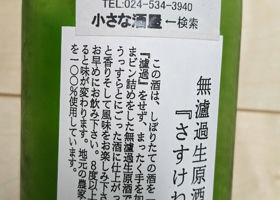 TEL:024-534-3940
小さな酒屋 ←検索
無濾過生原酒
『さすけね
この酒は、しぼりたての酒を
『濾過』をせず、まったく手を加
まビン詰めをした無濾過生原酒で
うっすらとにごった酒に仕上がっ
と香りそして風味をお楽しみ下さ
お早めにお飲み下さい。8度以上
ると味が変わります。地元の農家
を一〇〇%使用しています。